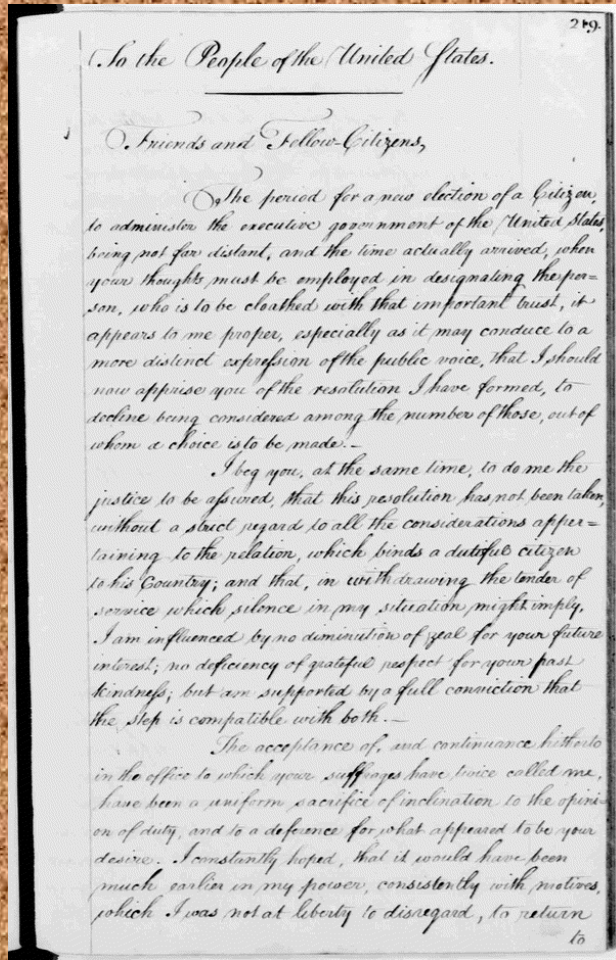 219.
To the People of the United States.
Friends and Fellow-Citizens,
The period for a new election of a Citizen,
to administer the executive government of the United States,
being not far distant, and the time actually arrived, when
your thoughts must be employed in designating the per=
son, who is to be cloathed with that important trust, it
appears to me proper, especially as it may conduce to a
more distinct expression of the public voice, that I should
now apprise you of the resolution I have formed, to
decline being considered among the number of those, out of
whom a choice is to be made.—
I beg you, at the same time, to do me the
justice to be assured, that this resolution has not been taken,
without a strict regard to all the considerations apper=
taining to the relation, which binds a dutiful citizen
to his Country; and that, in withdrawing the tender of
service which silence in my situation might imply,
I am influenced by no diminution of zeal for your future
interest; no deficiency of grateful respect for your past
kindness; but am supported by a full conviction that
the step is compatible with both.—
The acceptance of, and continuance hitherto
in the office to which your suffrages have twice called me,
have been a uniform sacrifice of inclination to the opini-
on of duty, and to a deference for what appeared to be your
desire. I constantly hoped, that it would have been
much earlier in my power, consistently with motives,
which I was not at liberty to disregard, to return
to